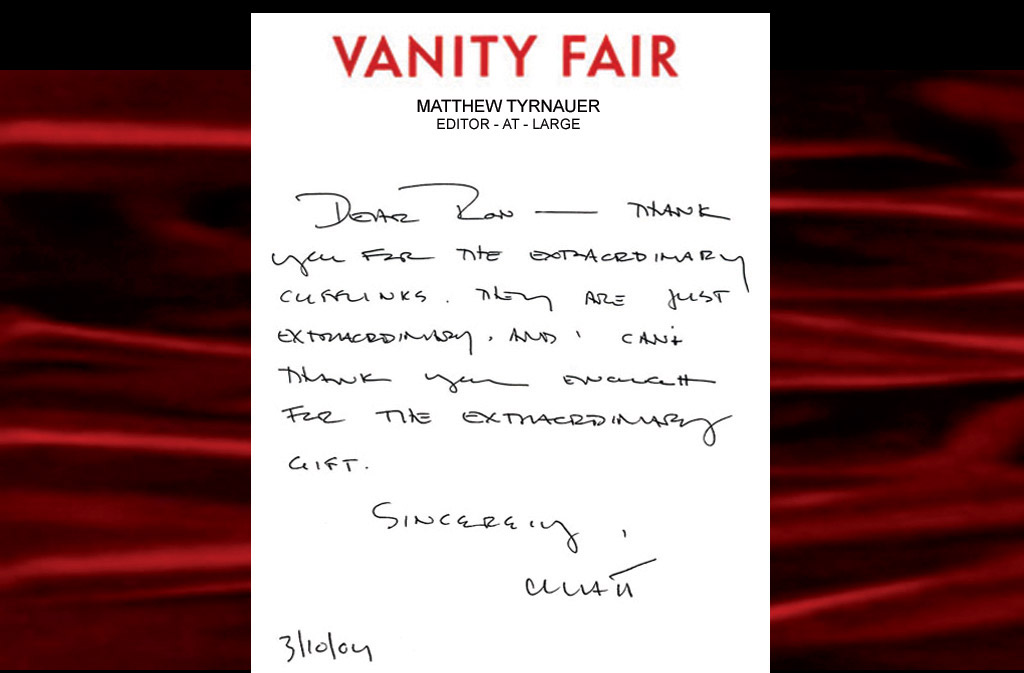 VANITY FAIR
MATTHEW TYRNAUER
EDITOR - AT - LARGE
DEAR RON — THANK
YOU FOR THE EXTRAORDINARY
CUFFLINKS. THEY ARE JUST
EXTRAORDINARY, AND I CAN'T
THANK YOU ENOUGH
FOR THE EXTRAORDINARY
GIFT.
SINCERELY,
MATT
3/10/04